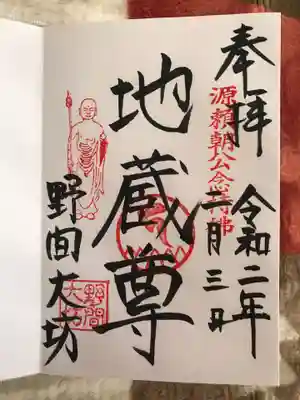 奉拝
源頼朝公念持佛
令和二年
二月三日
地蔵尊
野間大坊
野間
大坊